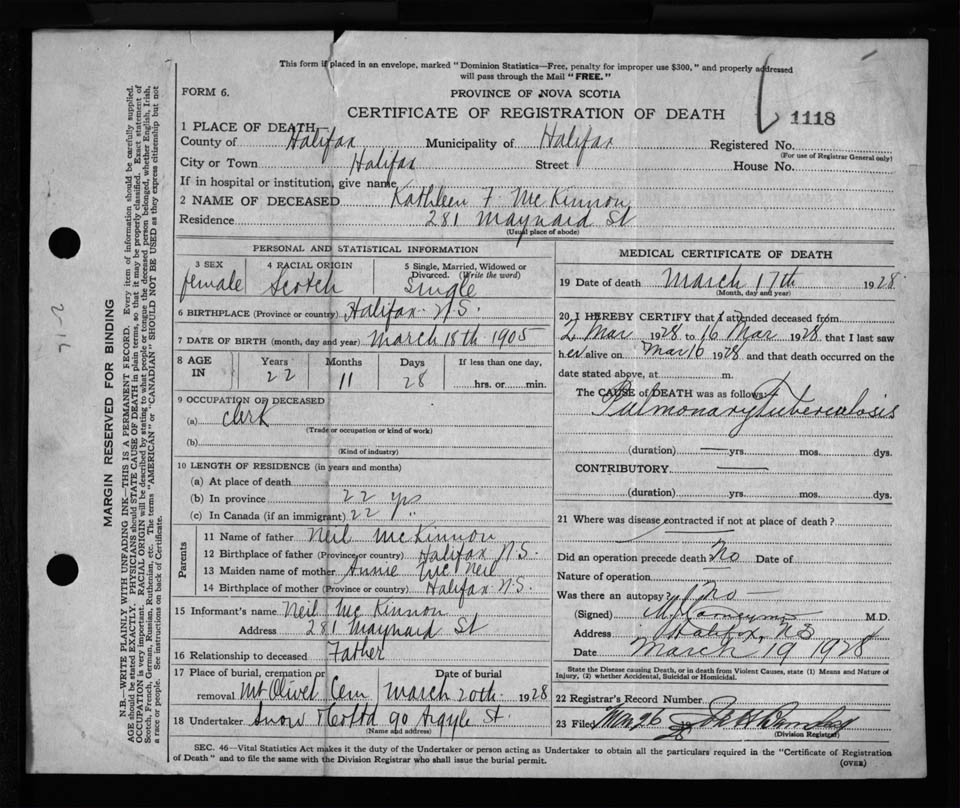 This form if placed in an envelope, marked "Dominion Statistics—Free, penalty for improper use $300," and properly addressed
will pass through the Mail "FREE."
FORM 6.
PROVINCE OF NOVA SCOTIA
CERTIFICATE OF REGISTRATION OF DEATH
1118
1 PLACE OF DEATH
County of Halifax Municipality of Halifax Registered No.
(For use of Registrar General only)
City or Town Halifax Street House No.
If in hospital or institution, give name
2 NAME OF DECEASED Kathleen F. McKinnon
Residence 281 Maynard St
(Usual place of abode)
PERSONAL AND STATISTICAL INFORMATION
3 SEX female
4 RACIAL ORIGIN Scotch
5 Single, Married, Widowed or Divorced. (Write the word) Single
6 BIRTHPLACE (Province or country) Halifax N.S.
7 DATE OF BIRTH (month, day and year) March 18th 1905
8 AGE IN Years 22 Months 11 Days 28 If less than one day, hrs. or min.
9 OCCUPATION OF DECEASED
(a) Clerk
(Trade or occupation or kind of work)
(b)
(Kind of industry)
10 LENGTH OF RESIDENCE (in years and months)
(a) At place of death
(b) In province 22 yrs
(c) In Canada (if an immigrant) 22 yrs
Parents
11 Name of father Neil McKinnon
12 Birthplace of father (Province or country) Halifax N.S.
13 Maiden name of mother Annie McNeil
14 Birthplace of mother (Province or country) Halifax N.S.
15 Informant's name Neil McKinnon
Address 281 Maynard St
16 Relationship to deceased Father
17 Place of burial, cremation or removal Mt Olivet Cem Date of burial March 20th 1928
18 Undertaker Snow & Co Ltd 90 Argyle St.
(Name and address)
MEDICAL CERTIFICATE OF DEATH
19 Date of death March 17th 1928
(Month, day and year)
20 I HEREBY CERTIFY that I attended deceased from
2 Mar 1928 to 16 Mar 1928 that I last saw
her alive on Mar 16 1928 and that death occurred on the
date stated above, at m.
The CAUSE OF DEATH was as follows:
Pulmonary Tuberculosis
(duration) yrs. mos. dys.
CONTRIBUTORY
(duration) yrs. mos. dys.
21 Where was disease contracted if not at place of death?
Did an operation precede death No Date of
Nature of operation
Was there an autopsy? No
(Signed) M.D.
Address Halifax, N.S
Date March 19 1928
State the Disease causing Death, or in death from Violent Causes, state (1) Means and Nature of
Injury, (2) whether Accidental, Suicidal or Homicidal.
22 Registrar's Record Number
23 Filed Mar 26
(Division Registrar)
SEC. 46—Vital Statistics Act makes it the duty of the Undertaker or person acting as Undertaker to obtain all the particulars required in the "Certificate of Registration
of Death" and to file the same with the Division Registrar who shall issue the burial permit.
(OVER)
MARGIN RESERVED FOR BINDING
N.B.—WRITE PLAINLY WITH UNFADING INK—THIS IS A PERMANENT RECORD. Every item of information should be carefully supplied.
AGE should be stated EXACTLY. PHYSICIANS should STATE CAUSE OF DEATH in plain terms, so that it may be properly classified. Exact statement of
OCCUPATION is very important. RACIAL ORIGIN will be described by stating to what people or tongue the deceased person belonged, whether English, Irish,
Scotch, French, German, Russian, Ruthenian, etc. The terms "AMERICAN" or "CANADIAN" SHOULD NOT BE USED as they express citizenship but not
a race or people. See instructions on back of Certificate.